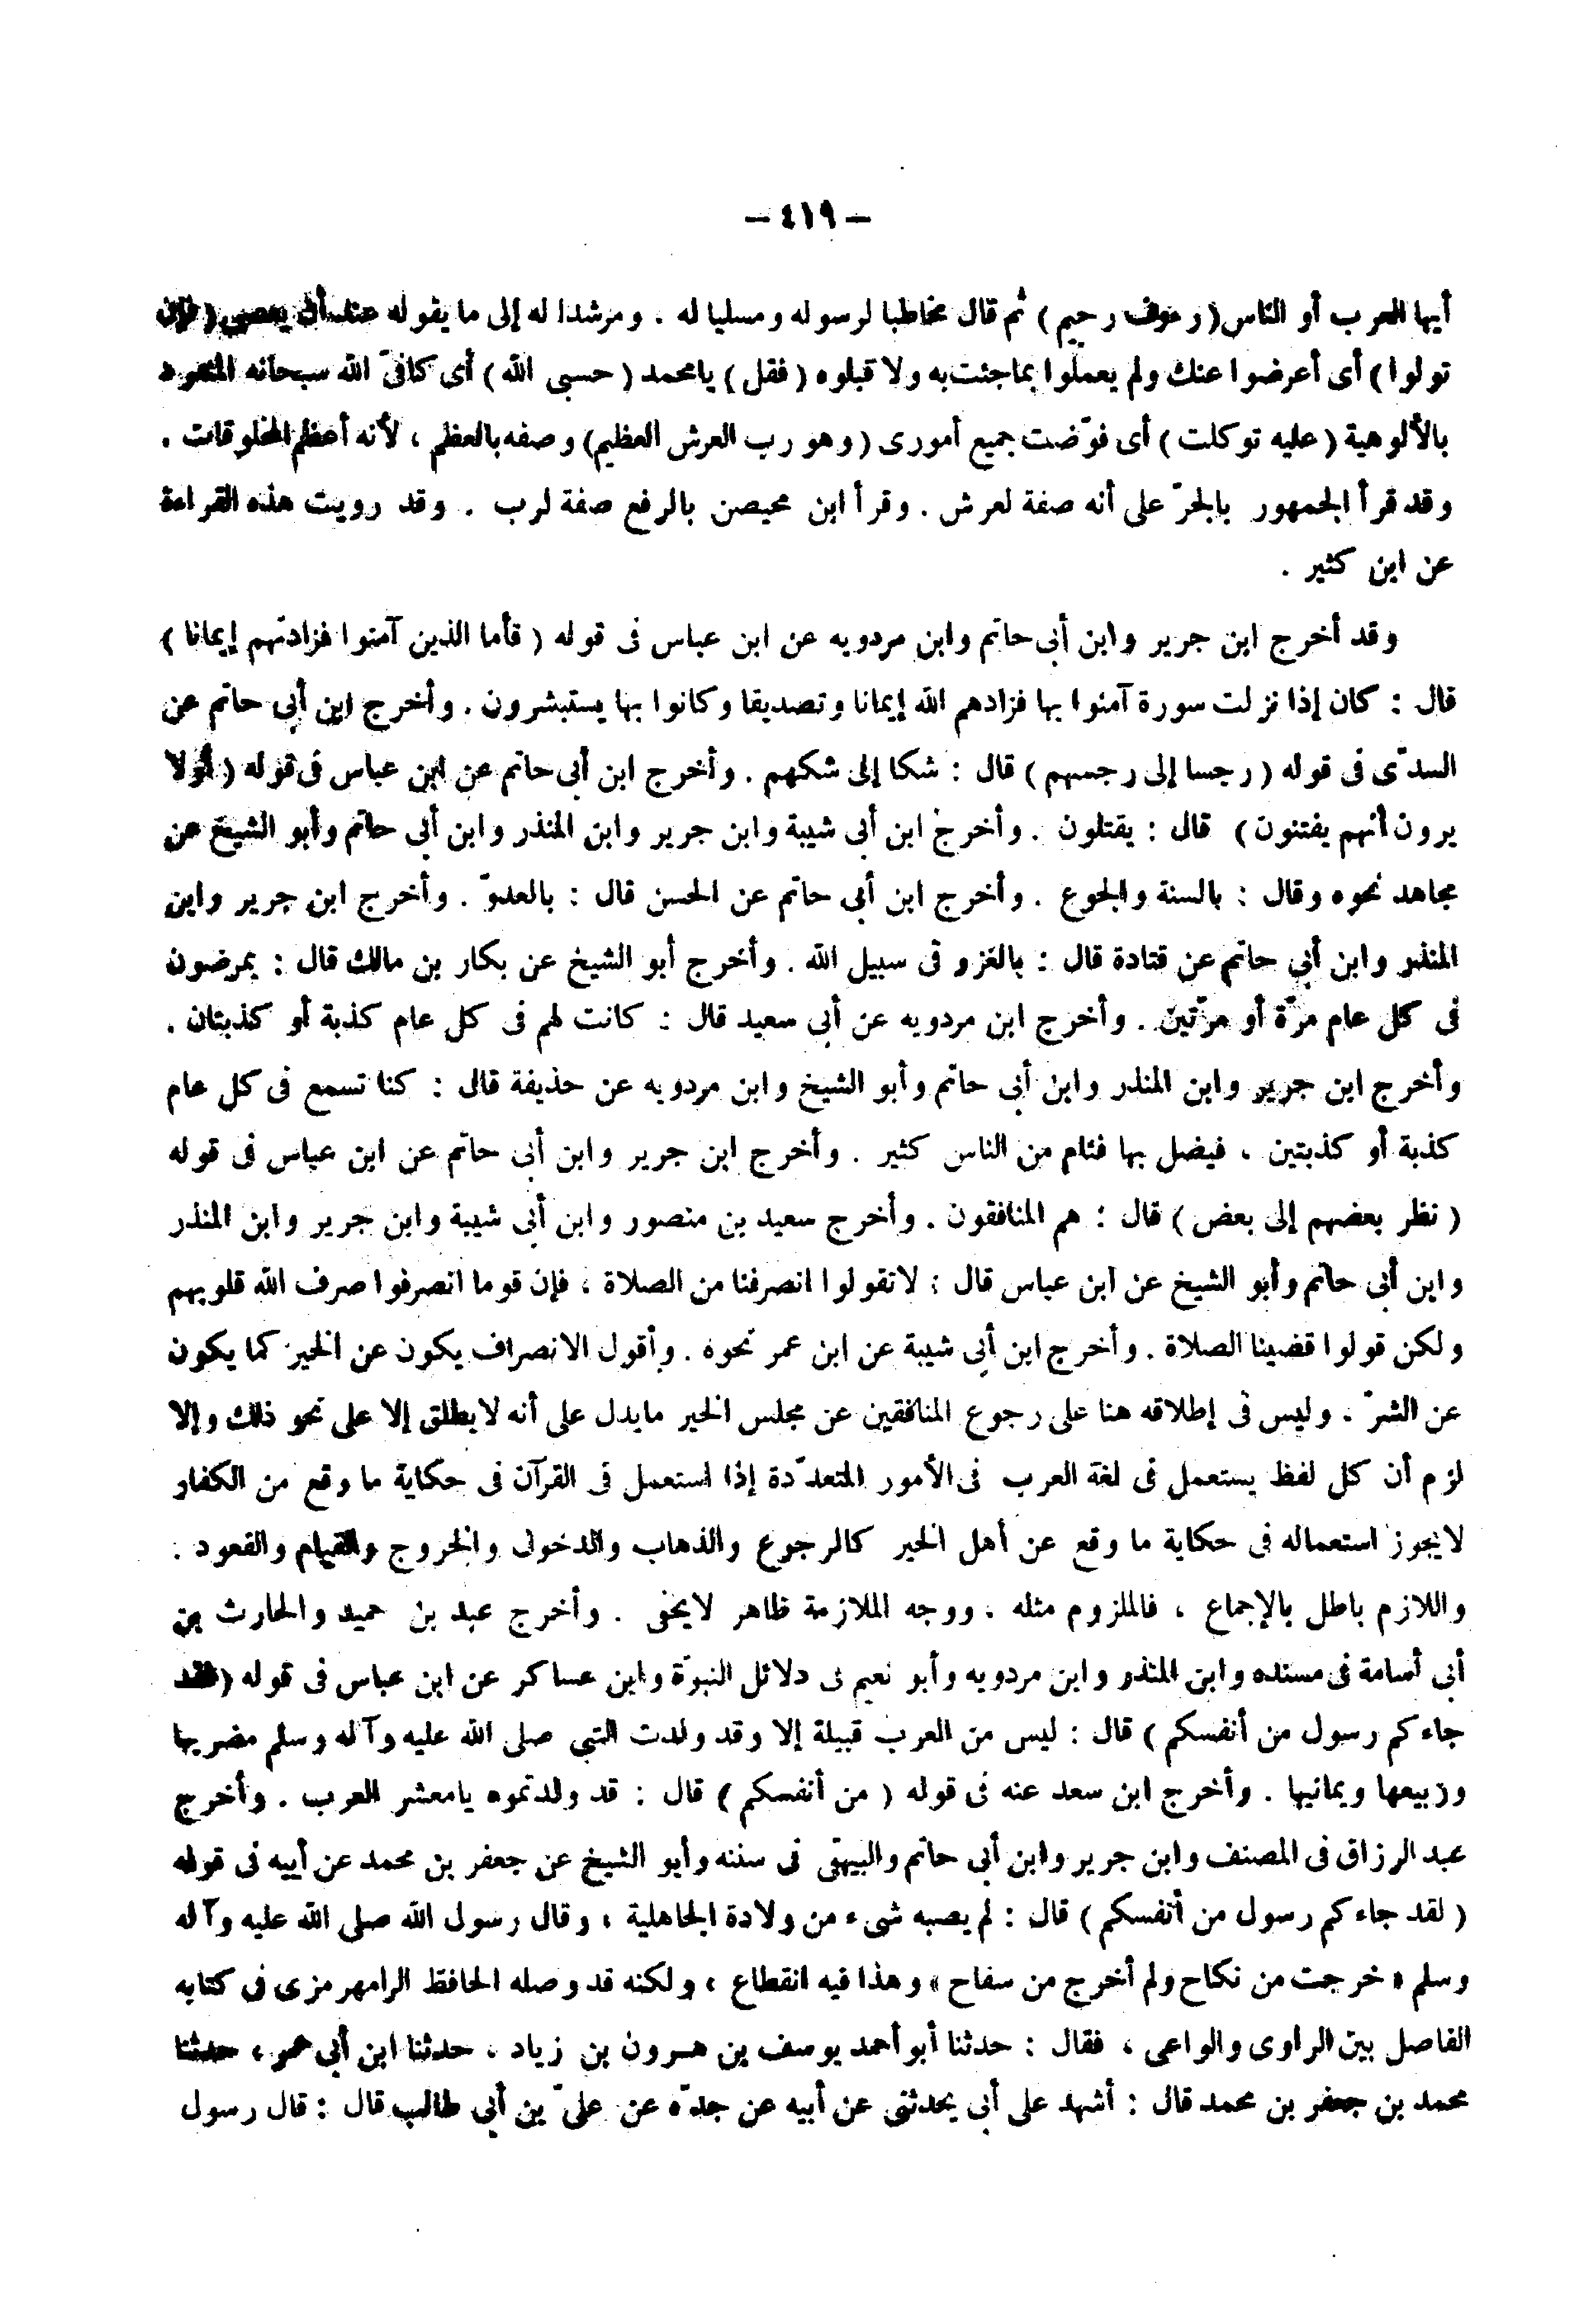 — ٤١٩ —
أيها العرب أو الناس (رءوف رحيم) ثم قال مخاطبا لرسوله ومسليا له . ومرشدا له إلى ما يقوله عند أن يعصى (فإن
تولوا) أى أعرضوا عنك ولم يعملوا بما جئت به ولا قبلوه (فقل) يا محمد (حسبى الله) أى كافىّ الله سبحانه المنفرد
بالألوهية (عليه توكلت) أى فوّضت جميع أمورى (وهو رب العرش العظيم) وصفه بالعظم ، لأنه أعظم المخلوقات .
وقد قرأ الجمهور بالجرّ على أنه صفة لعرش . وقرأ ابن محيصن بالرفع صفة لرب . وقد رويت هذه القراءة
عن ابن كثير .
وقد أخرج ابن جرير وابن أبى حاتم وابن مردويه عن ابن عباس فى قوله (فأما الذين آمنوا فزادتهم إيمانا)
قال : كان إذا نزلت سورة آمنوا بها فزادهم الله إيمانا وتصديقا وكانوا بها يستبشرون . وأخرج ابن أبى حاتم عن
السدّى فى قوله (رجسا إلى رجسهم) قال : شكا إلى شكهم . وأخرج ابن أبى حاتم عن ابن عباس فى قوله (أولا
يرون أنهم يفتنون) قال : يقتلون . وأخرج ابن أبى شيبة وابن جرير وابن المنذر وابن أبى حاتم وأبو الشيخ عن
مجاهد نحوه وقال : بالسنة والجوع . وأخرج ابن أبى حاتم عن الحسن قال : بالعدوّ . وأخرج ابن جرير وابن
المنذر وابن أبى حاتم عن قتادة قال : بالغزو فى سبيل الله . وأخرج أبو الشيخ عن بكار بن مالك قال : يمرضون
فى كل عام مرّة أو مرّتين . وأخرج ابن مردويه عن أبى سعيد قال : كانت لهم فى كل عام كذبة أو كذبتان .
وأخرج ابن جرير وابن المنذر وابن أبى حاتم وأبو الشيخ وابن مردويه عن حذيفة قال : كنا نسمع فى كل عام
كذبة أو كذبتين ، فيضل بها فئام من الناس كثير . وأخرج ابن جرير وابن أبى حاتم عن ابن عباس فى قوله
(نظر بعضهم إلى بعض) قال : هم المنافقون . وأخرج سعيد بن منصور وابن أبى شيبة وابن جرير وابن المنذر
وابن أبى حاتم وأبو الشيخ عن ابن عباس قال : لا تقولوا انصرفنا من الصلاة ، فإن قوما انصرفوا صرف الله قلوبهم
ولكن قولوا قضينا الصلاة . وأخرج ابن أبى شيبة عن ابن عمر نحوه . وأقول الانصراف يكون عن الخير كما يكون
عن الشرّ . وليس فى إطلاقه هنا على رجوع المنافقين عن مجلس الخير ما يدل على أنه لا يطلق إلا على نحو ذلك وإلا
لزم أن كل لفظ يستعمل فى لغة العرب فى الأمور المتعدّدة إذا استعمل فى القرآن فى حكاية ما وقع من الكفار
لا يجوز استعماله فى حكاية ما وقع عن أهل الخير كالرجوع والذهاب والدخول والخروج والقيام والقعود .
واللازم باطل بالإجماع ، فالملزوم مثله . ووجه الملازمة ظاهر لا يخفى . وأخرج عبد بن حميد والحارث بن
أبى أسامة فى مسنده وابن المنذر وابن مردويه وأبو نعيم فى دلائل النبوّة وابن عساكر عن ابن عباس فى قوله (لقد
جاءكم رسول من أنفسكم) قال : ليس من العرب قبيلة إلا وقد ولدت النبى صلى الله عليه وآله وسلم مضريها
وربيعها ويمانيها . وأخرج ابن سعد عنه فى قوله (من أنفسكم) قال : قد ولدتموه يا معشر العرب . وأخرج
عبد الرزاق فى المصنف وابن جرير وابن أبى حاتم والبيهقى فى سننه وأبو الشيخ عن جعفر بن محمد عن أبيه فى قوله
(لقد جاءكم رسول من أنفسكم) قال : لم يصبه شىء من ولادة الجاهلية ، وقال رسول الله صلى الله عليه وآله
وسلم « خرجت من نكاح ولم أخرج من سفاح » وهذا فيه انقطاع ، ولكنه قد وصله الحافظ الرامهرمزى فى كتابه
الفاصل بين الراوى والواعى ، فقال : حدثنا أبو أحمد يوسف بن هرون بن زياد ، حدثنا ابن أبى عمر ، حدثنا
محمد بن جعفر بن محمد قال : أشهد على أبى يحدثنى عن أبيه عن جدّه عن علىّ بن أبى طالب قال : قال رسول